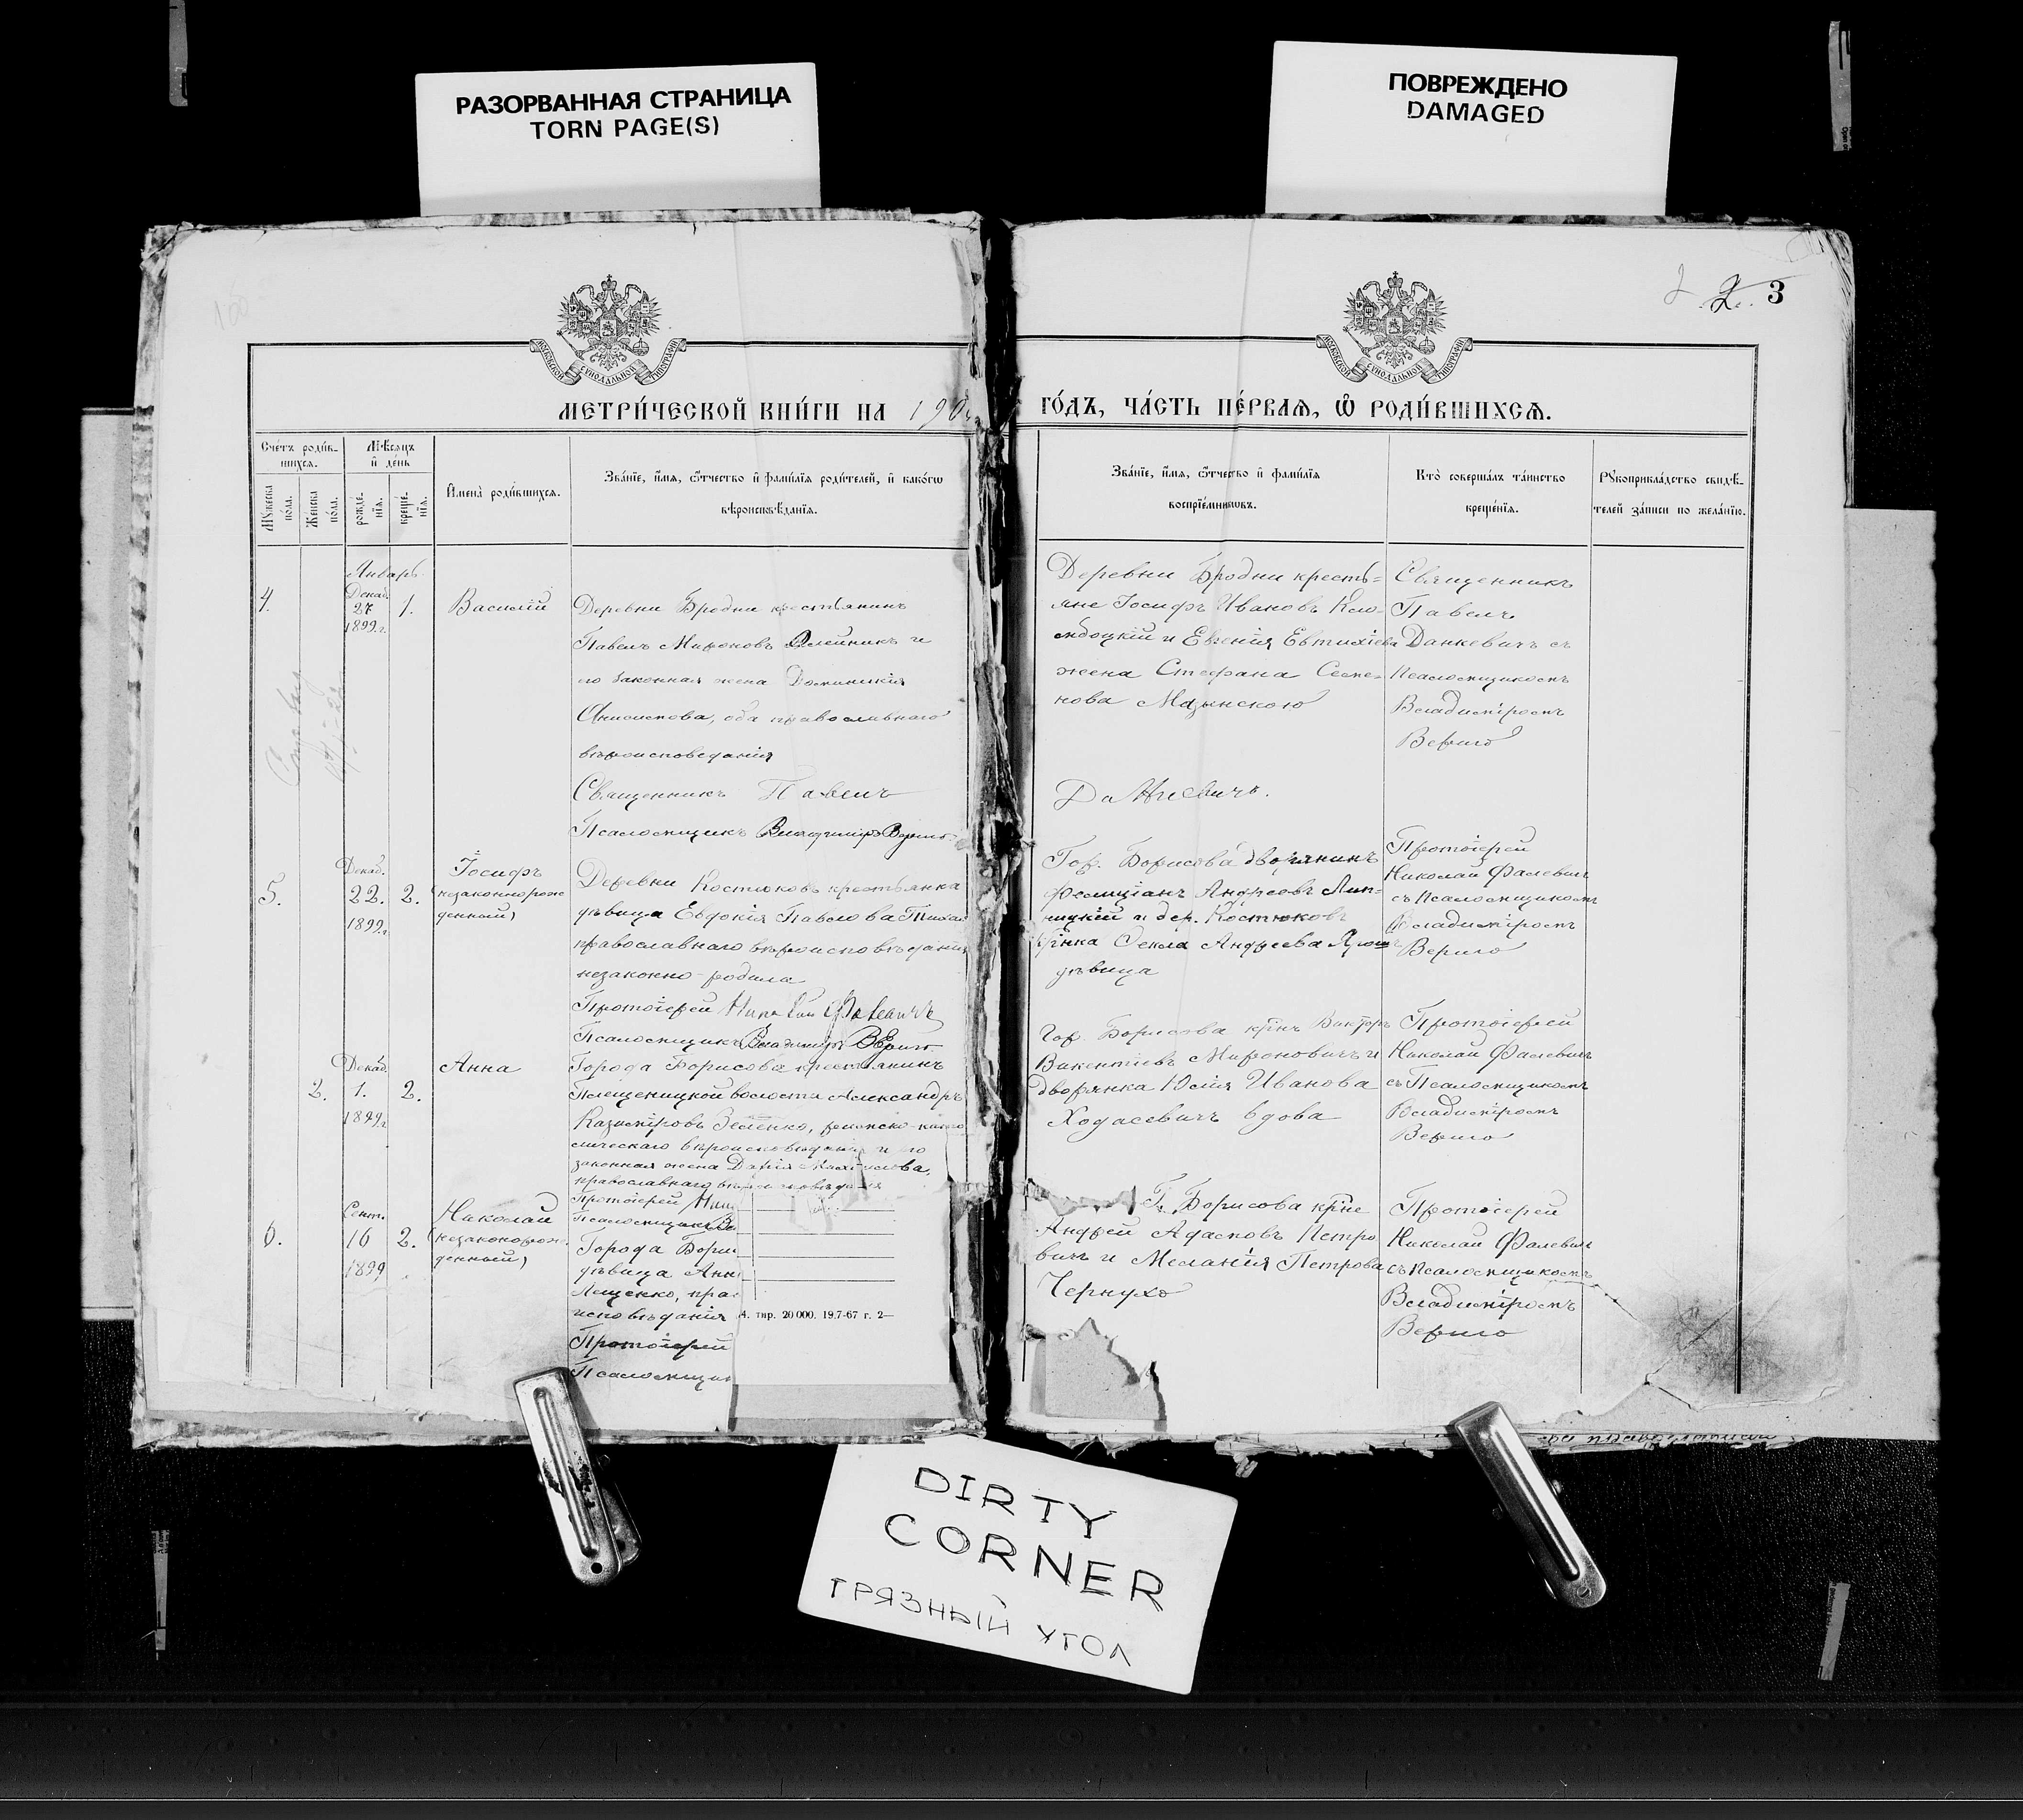 РАЗОРВАННАЯ СТРАНИЦА
TORN PAGE(S)
ПОВРЕЖДЕНО
DAMAGED
2. 3
МОСКОВСКОЙ СѴНОДАЛЬНОЙ ТИПОГРАФІИ
МОСКОВСКОЙ СѴНОДАЛЬНОЙ ТИПОГРАФІИ
МЕТРИ́ЧЕСКОЙ КНИ́ГИ НА 190
ГО́ДЪ, ЧА́СТЬ ПЕ́РВАѦ, Ѡ҆ РОДИ́ВШИХСѦ.
Сче́тъ роди́в-
шихсѧ.
Мꙋ́жеска по́ла.
Же́нска по́ла.
Мѣ́сѧцъ
и҆ де́нь
рожде́-
нїѧ.
креще́-
нїѧ.
И҆мена̀ роди́вшихсѧ.
Зва́нїе, и҆́мѧ, ѻ҆́тчество и҆ фамилїѧ роди́телей, и҆ како́гѡ
вѣроисповѣ́данїѧ.
Зва́нїе, и҆́мѧ, ѻ҆́тчество и҆ фамилїѧ
воспрїе́мникѡвъ.
Кто̀ соверша́лъ та́инство
креще́нїѧ.
Рꙋкоприкла́дство свидѣ́-
телей за́писи по жела́нїю.
Январь
4.
Декаб.
27
1899 г.
1.
Василій
Деревни Бродни крестьянинъ
Павелъ Мироновъ Олейникъ и
его законная жена Доминикія
Онисимова, оба православнаго
вѣроисповеданія
Священникъ Павелъ
Псаломщикъ Владимиръ Верыго
Деревни Бродни кресть=
яне Іосифъ Ивановъ
и Евгенія Евтихіева
жена Стефана Семе=
нова Мазынскою
Данкевичъ.
Священникъ
Павелъ
Данкевичъ съ
Псаломщикомъ
Владиміромъ
Верыго
5.
Декаб.
22.
1899 г.
2.
Іосифъ
(незаконнорож
денный)
Деревни Костюковъ крестьянка
дѣвица Евдокія Павлова
православнаго вѣроисповѣданія
незаконно-родила
Протоіерей Николай Фалевичъ
Псаломщикъ Владимиръ Верыго
Гор. Борисова дворянинъ
Фелиціанъ Андреевъ Лип=
ницкій и дер. Костюковъ
кр̃нка Ѳекла Андреева
дѣвица
Протоіерей
Николай Фалевичъ
съ Псаломщикомъ
Владиміромъ
Верыго
2.
Декаб.
1.
1899 г.
2.
Анна
Города Борисова крестьянинъ
Плещеницкой волости Александръ
Казиміровъ Зеленко, римско-като
лическаго вѣроисповѣданія и его
законная жена Дарія
православнаго вѣроисповѣданія
Протоіерей Ник
Псаломщикъ Вл
Гор. Борисова кр̃нъ Викторъ
Викентіевъ Мироновичъ и
дворянка Юлія Иванова
Ходасевичъ вдова
Протоіерей
Николай Фалевичъ
съ Псаломщикомъ
Владиміромъ
Верыго
6.
Сент.
16
1899
2.
Николай
(незаконорож.
денный)
Города Бори
дѣвица Анн
Лещенко, прав
исповѣданія
Протоіерей
Псаломщик
4. тир. 20 000. 19.7-67 г. 2—
Г. Борисова кр̃не
Андрей Адамовъ Петро
вичъ и Меланія Петрова
Чернухо
Протоіерей
Николай Фалевичъ
съ Псаломщикомъ
Владиміромъ
Верыго
DIRTY
CORNER
ГРЯЗНЫЙ УГОЛ